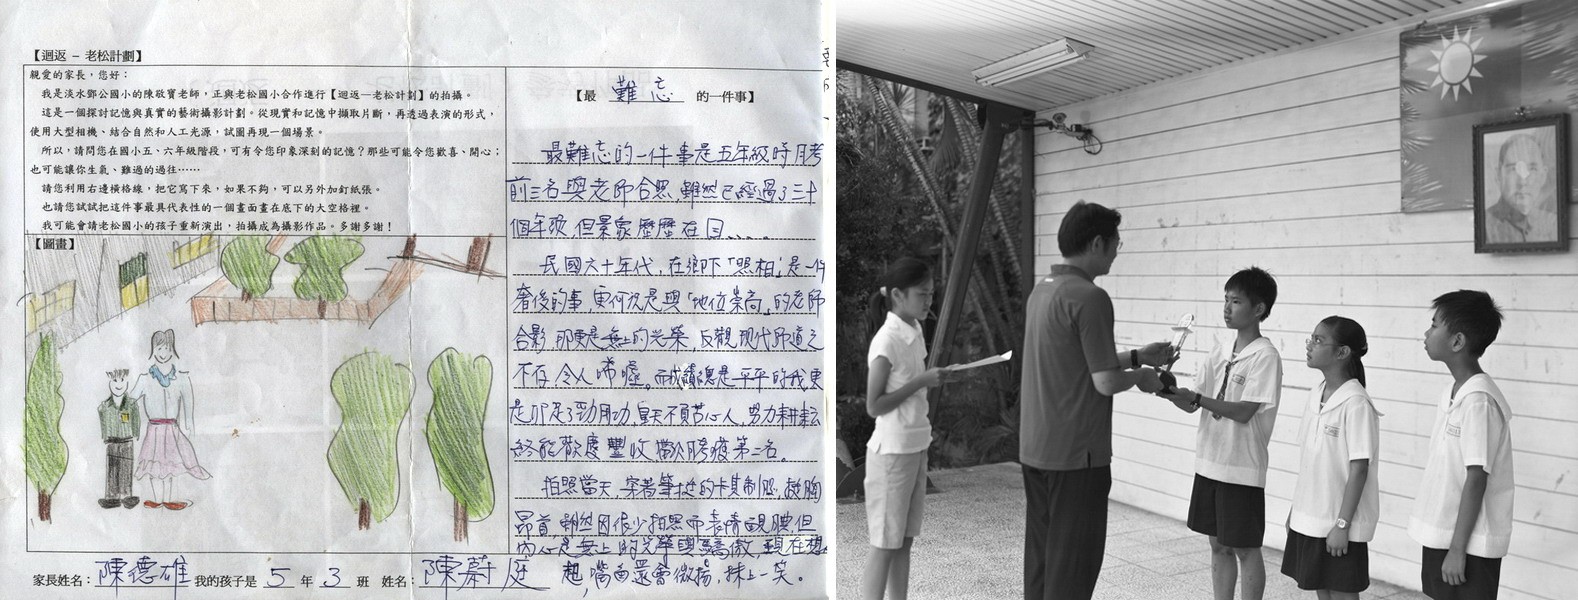 【迴返 – 老松計劃】
親愛的家長，您好：
我是淡水鄧公國小的陳敬寶老師，正與老松國小合作進行【迴返—老松計劃】的拍攝。
這是一個探討記憶與真實的藝術攝影計劃。從現實和記憶中擷取片斷，再透過表演的形式，
使用大型相機、結合自然和人工光源，試圖再現一個場景。
所以，請問您在國小五、六年級階段，可有令您印象深刻的記憶？那些可能令您歡喜、開心；
也可能讓你生氣、難過的過往……
請您利用右邊橫格線，把它寫下來，如果不夠，可以另外加釘紙張。
也請您試試把這件事最具代表性的一個畫面畫在底下的大空格裡。
我可能會請老松國小的孩子重新演出，拍攝成為攝影作品。多謝多謝！
【圖畫】
【最 難忘 的一件事】
最難忘的一件事是五年級時月考
前三名與老師合照，雖然已經過了三十
個年頭，但景象歷歷在目....
民國六十年代，在鄉下「照相」是一件
奢侈的事，更何況是與「地位崇高」的老師
合影，那更是無上的光榮，反觀現代師道之
不存，令人唏噓。而成績總是平平的我更
是卯足了勁用功，皇天不負苦心人，努力耕耘
終能歡度豐收，那次月考獲第二名。
拍照當天，穿著筆挺的卡其制服，挺胸
昂首，雖然因很少拍照而表情靦腆，但
內心是無上的光榮與驕傲，現在想
起，嘴角還會微揚，抹上一笑。
家長姓名：陳德雄 我的孩子是 5 年 3 班 姓名：陳蔚庭